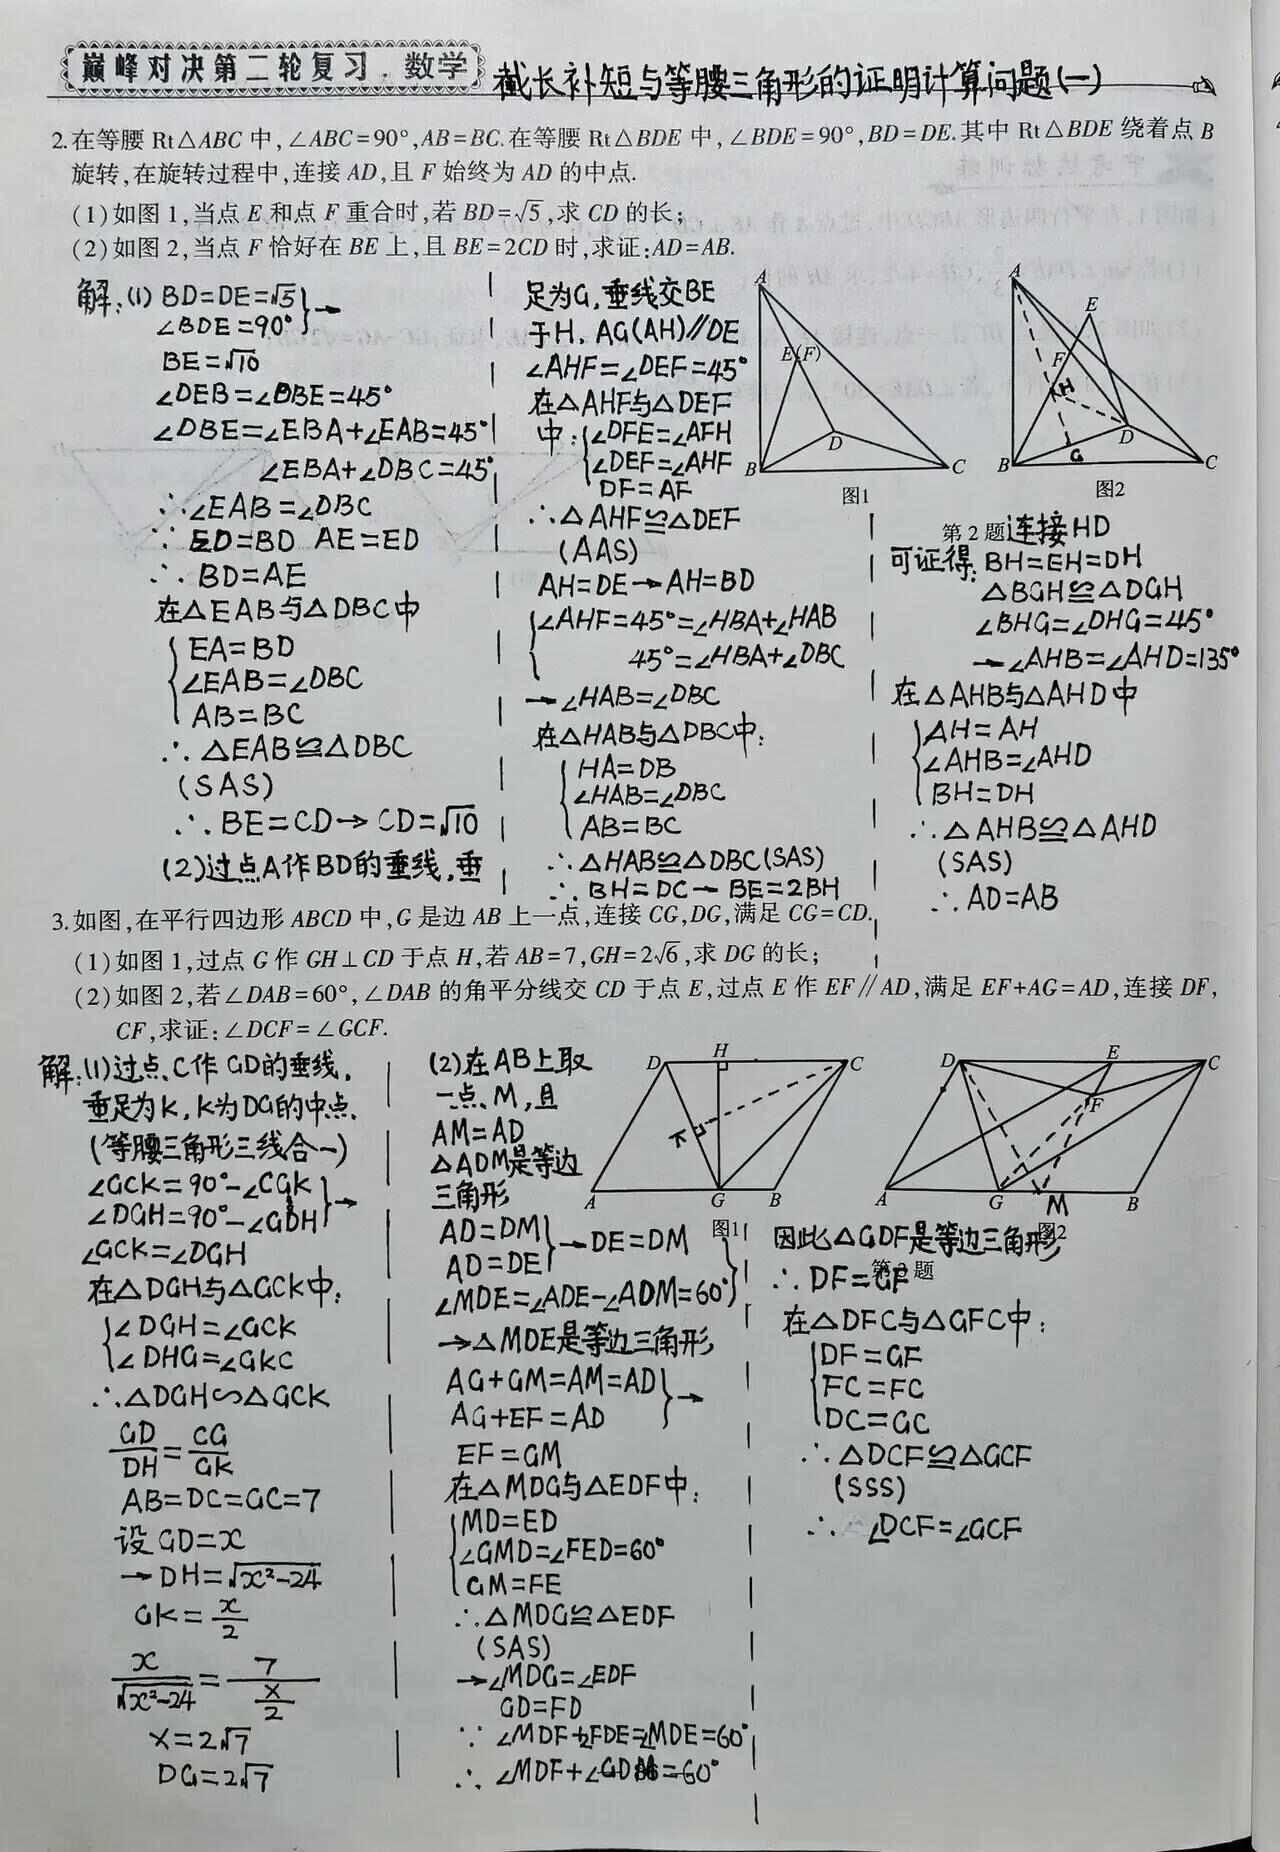 巅峰对决第二轮复习·数学
截长补短与等腰三角形的证明计算问题(一)
2.在等腰 Rt△ABC 中,∠ABC=90°,AB=BC.在等腰 Rt△BDE 中,∠BDE=90°,BD=DE.其中 Rt△BDE 绕着点 B
旋转,在旋转过程中,连接 AD,且 F 始终为 AD 的中点.
(1)如图1,当点 E 和点 F 重合时,若 BD=√5,求 CD 的长;
(2)如图2,当点 F 恰好在 BE 上,且 BE=2CD 时,求证:AD=AB.
解:(1) BD=DE=√5
∠BDE=90° }→
BE=√10
∠DEB=∠DBE=45°
∠DBE=∠EBA+∠EAB=45°
∠EBA+∠DBC=45°
∴∠EAB=∠DBC
∵ ED=BD AE=ED
∴ BD=AE
在△EAB与△DBC中
{ EA=BD
∠EAB=∠DBC
AB=BC
∴ △EAB≌△DBC
(SAS)
∴ BE=CD→CD=√10
(2)过点A作BD的垂线,垂
足为G,垂线交BE
于H, AG(AH)∥DE
∠AHF=∠DEF=45°
在△AHF与△DEF
中:{ ∠DFE=∠AFH
∠DEF=∠AHF
DF=AF
∴△AHF≌△DEF
(AAS)
AH=DE→AH=BD
{ ∠AHF=45°=∠HBA+∠HAB
45°=∠HBA+∠DBC
→∠HAB=∠DBC
在△HAB与△DBC中:
{ HA=DB
∠HAB=∠DBC
AB=BC
∴△HAB≌△DBC(SAS)
∴ BH=DC→BE=2BH
A
E(F)
D
B
C
图1
A
E
F
H
D
G
B
C
图2
第2题
连接HD
可证得: BH=EH=DH
△BGH≌△DGH
∠BHG=∠DHG=45°
→∠AHB=∠AHD=135°
在△AHB与△AHD中
{ AH=AH
∠AHB=∠AHD
BH=DH
∴ △AHB≌△AHD
(SAS)
∴ AD=AB
3.如图,在平行四边形 ABCD 中,G 是边 AB 上一点,连接 CG,DG,满足 CG=CD.
(1)如图1,过点 G 作 GH⊥CD 于点 H,若 AB=7,GH=2√6,求 DG 的长;
(2)如图2,若∠DAB=60°,∠DAB 的角平分线交 CD 于点 E,过点 E 作 EF∥AD,满足 EF+AG=AD,连接 DF,
CF,求证:∠DCF=∠GCF.
解:(1)过点C作GD的垂线,
垂足为K, K为DG的中点.
(等腰三角形三线合一)
∠GCK=90°-∠CGK
∠DGH=90°-∠GDH }→
∠GCK=∠DGH
在△DGH与△GCK中:
{ ∠DGH=∠GCK
∠DHG=∠GKC
∴△DGH∽△GCK
GD/DH=CG/GK
AB=DC=GC=7
设GD=x
→DH=√x²-24
GK=x/2
x/√x²-24=7/(x/2)
x=2√7
DG=2√7
(2)在AB上取
一点M,且
AM=AD
△ADM是等边
三角形
AD=DM
AD=DE }→DE=DM
∠MDE=∠ADE-∠ADM=60° }
→△MDE是等边三角形
AG+GM=AM=AD
AG+EF=AD }→
EF=GM
在△MDG与△EDF中:
{ MD=ED
∠GMD=∠FED=60°
GM=FE
∴△MDG≌△EDF
(SAS)
→∠MDG=∠EDF
GD=FD
∵ ∠MDF+∠FDE=∠MDE=60°
∴ ∠MDF+∠GDM=60°
D
H
C
K
A
G
B
图1
D
E
C
F
A
G
M
B
图2
第3题
因此△GDF是等边三角形
∴ DF=GF
在△DFC与△GFC中:
{ DF=GF
FC=FC
DC=GC
∴ △DCF≌△GCF
(SSS)
∴ ∠DCF=∠GCF